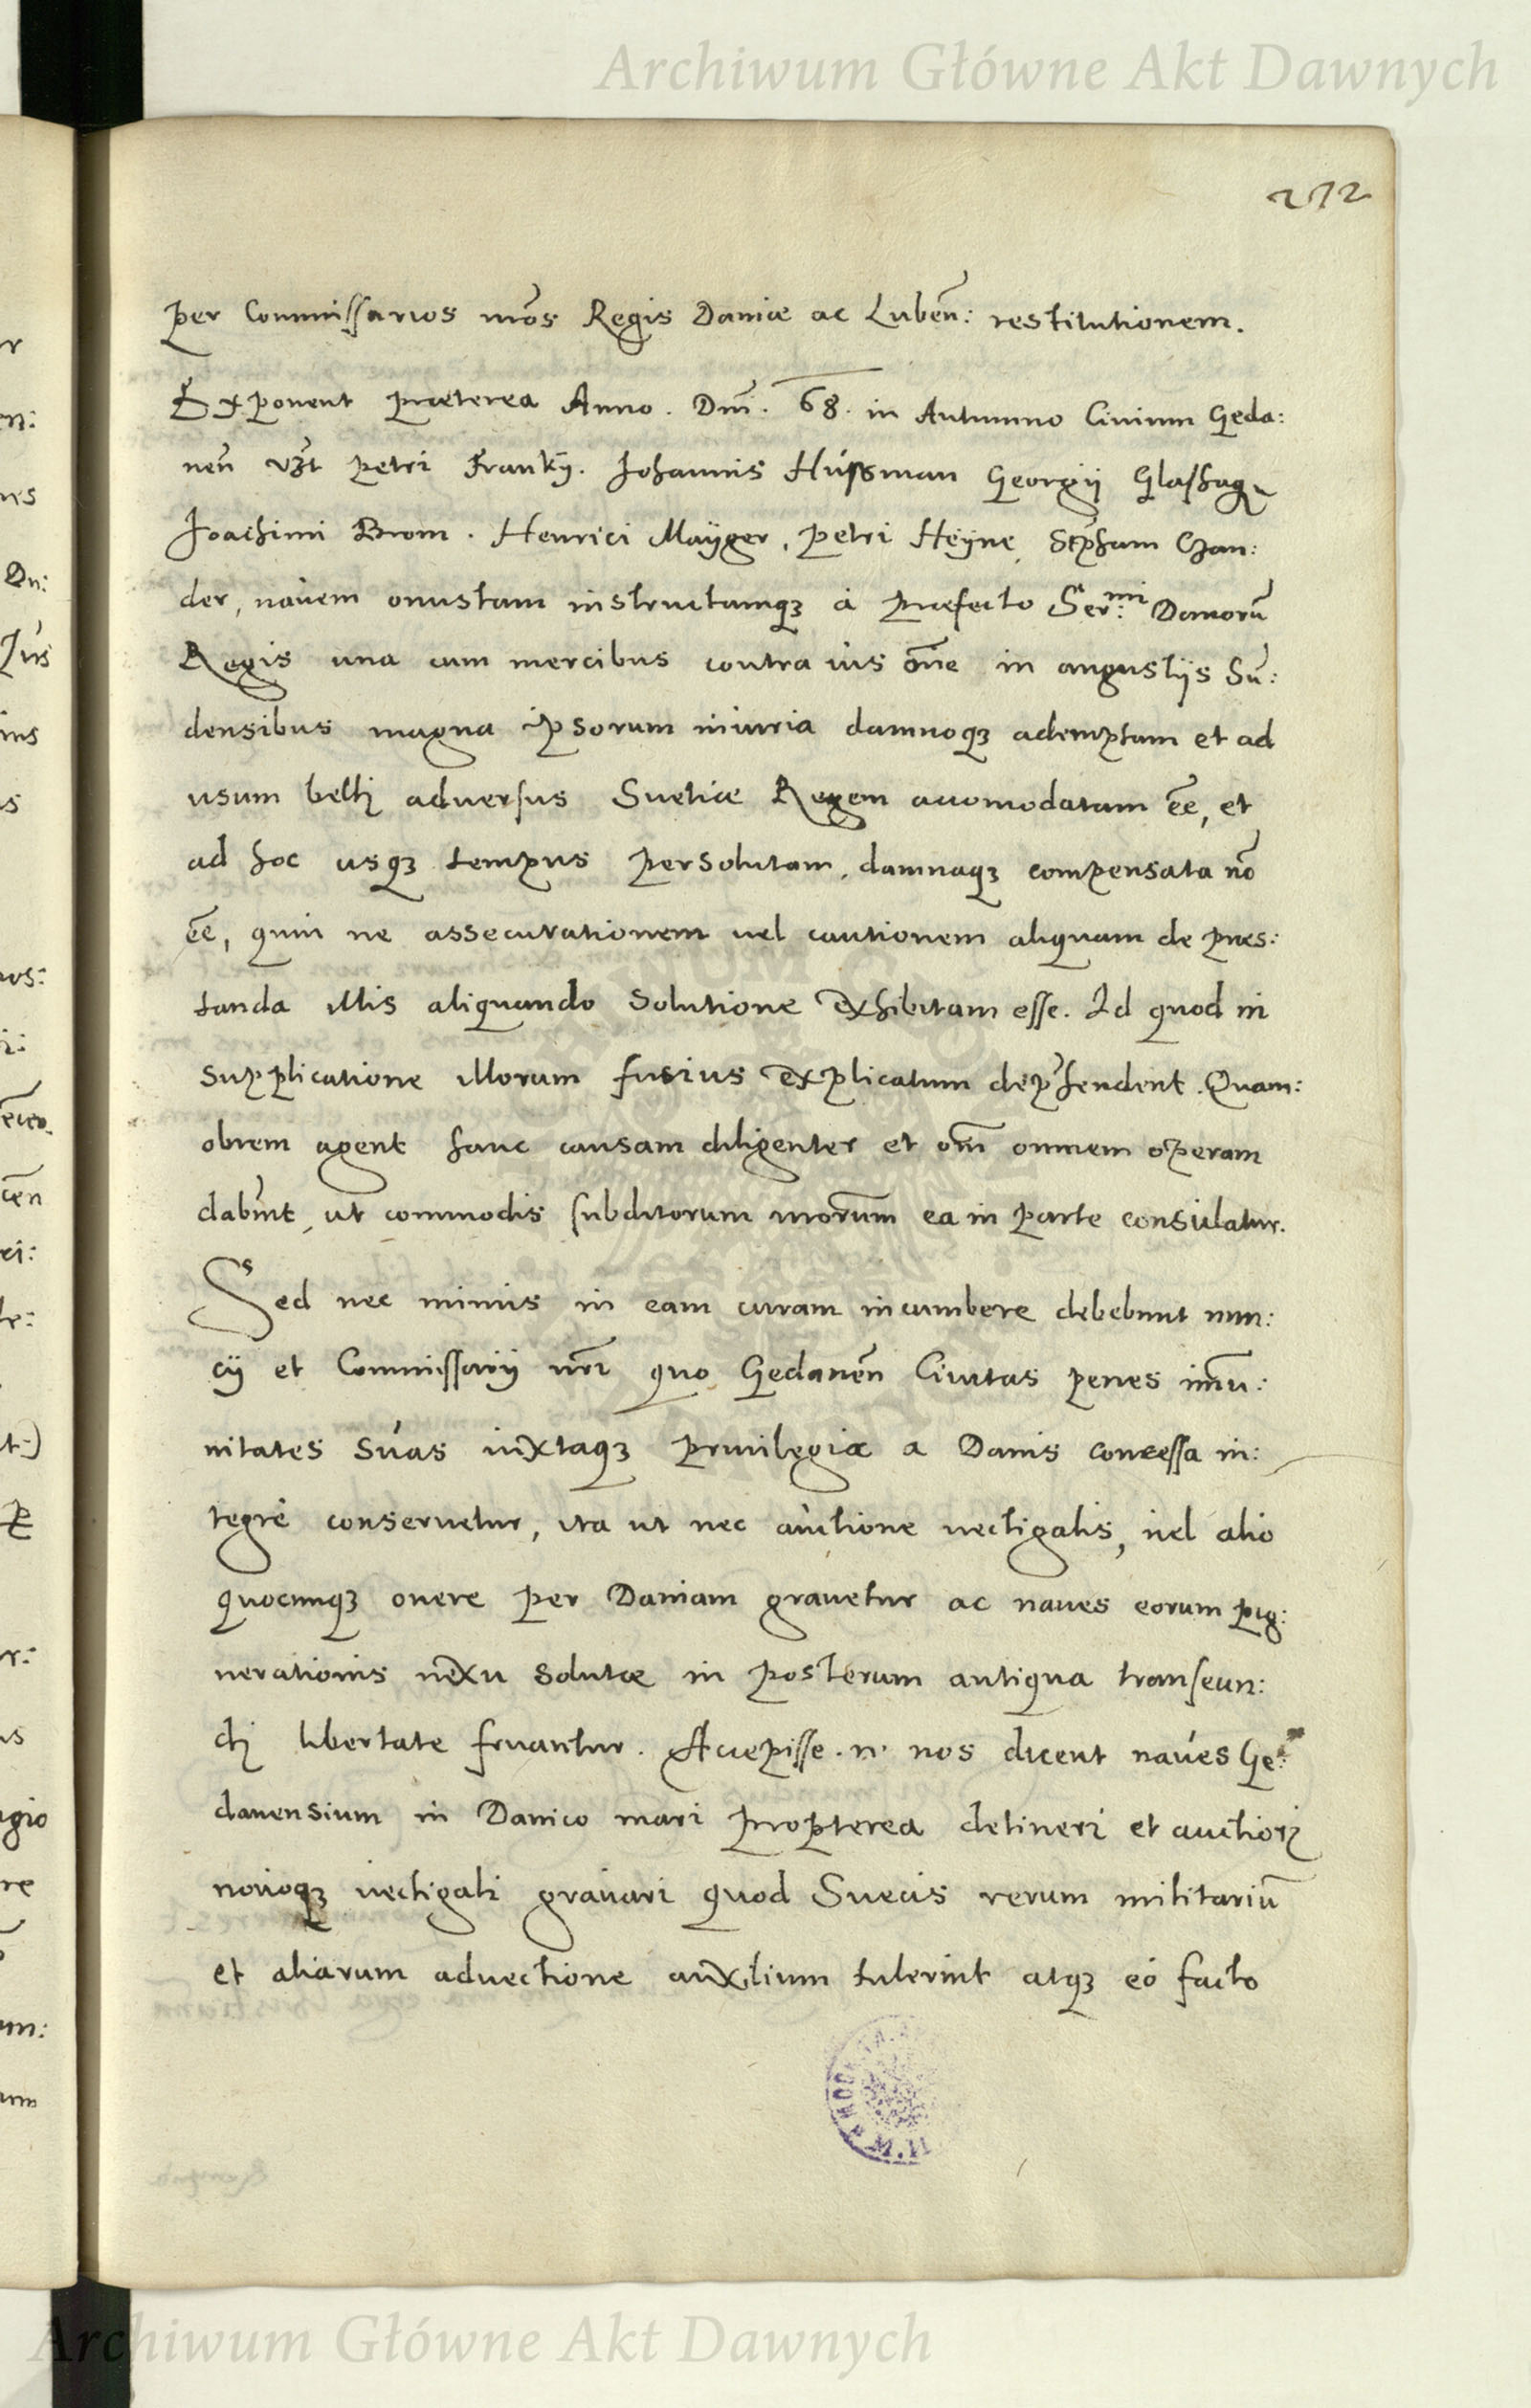 Archiwum Główne Akt Dawnych
272
per Commissarios nr̄os Regis Daniæ ac Lubeñ: restitutionem.
Exponent præterea Anno. Dnī. 68. in Autumno Civium Geda:
neñ vzt Petri Franky. Johannis Hússman Georgij Glashag
Joachimi Brom. Henrici Maÿger, Petri Heÿne, Stephani Czan:
der, navem onustam instructamqꝫ à præfecto Ser:mi Danorū
Regis una cum mercibus contra ius om̄e in angustijs Sū:
densibus magna ipsorum iniuria damnoqꝫ ademptam et ad
usum belli adversus Suetiæ Regem accomodatam ēe, et
ad hoc usqꝫ tempus persolutam, damnaqꝫ compensata nō
ēe, quin ne assecurationem vel cautionem aliquam de præs:
tanda illis aliquando solutione exhibitam esse. Id quod in
supplicatione illorum fusius explicatum dep̃hendent. Quam:
obrem agent hanc causam diligenter et om̄ omnem operam
dabunt, ut commodis subditorum nrorum̄ ea in parte consulatur.
Sed nec minus in eam curam incumbere debebunt nun:
cij et Commissarij nr̄i quo Gedaneñ Civitas penes im̄u:
nitates súas iuxtaqꝫ privilegia a Danis concessa in:
tegrè conservetur, ita ut nec auctione vectigalis, vel alio
quocunqꝫ onere per Daniam gravetur ac naves eorum pig:
nerationis nexu solutæ in posterum antiqua transeun:
di libertate fruantur. Accepisse .n. nos dicent naves Ge:
danensium in Danico mari propterea detineri et auctiori
novoqꝫ vectigali gravari quod Suecis rerum militariū
et aliarum advectione auxilium tulerint atqꝫ eò facto
Archiwum Główne Akt Dawnych